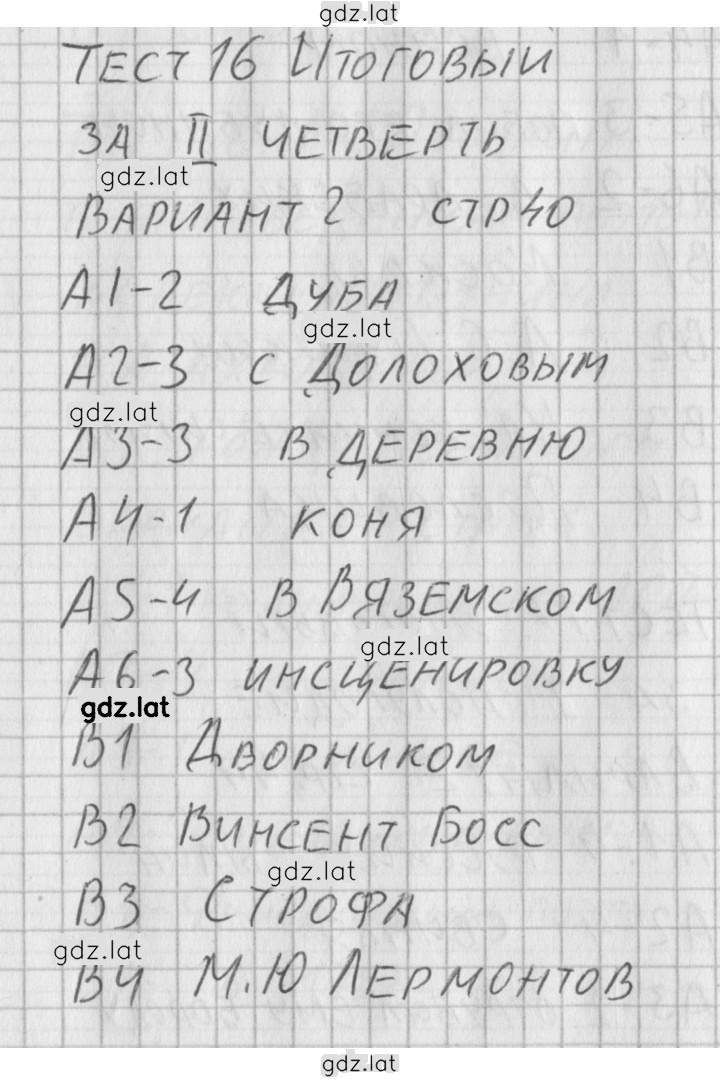 gdz.lat
Тест 16 Итоговый
за II четверть
gdz.lat
Вариант 2 стр 40
А1-2 Дуба
gdz.lat
А2-3 с Долоховым
gdz.lat
А3-3 в деревню
А4-1 коня
А5-4 в Вяземском
gdz.lat
А6-3 инсценировку
gdz.lat
В1 Дворником
В2 Винсент Босс
gdz.lat
В3 Строфа
gdz.lat
В4 М.Ю Лермонтов
gdz.lat